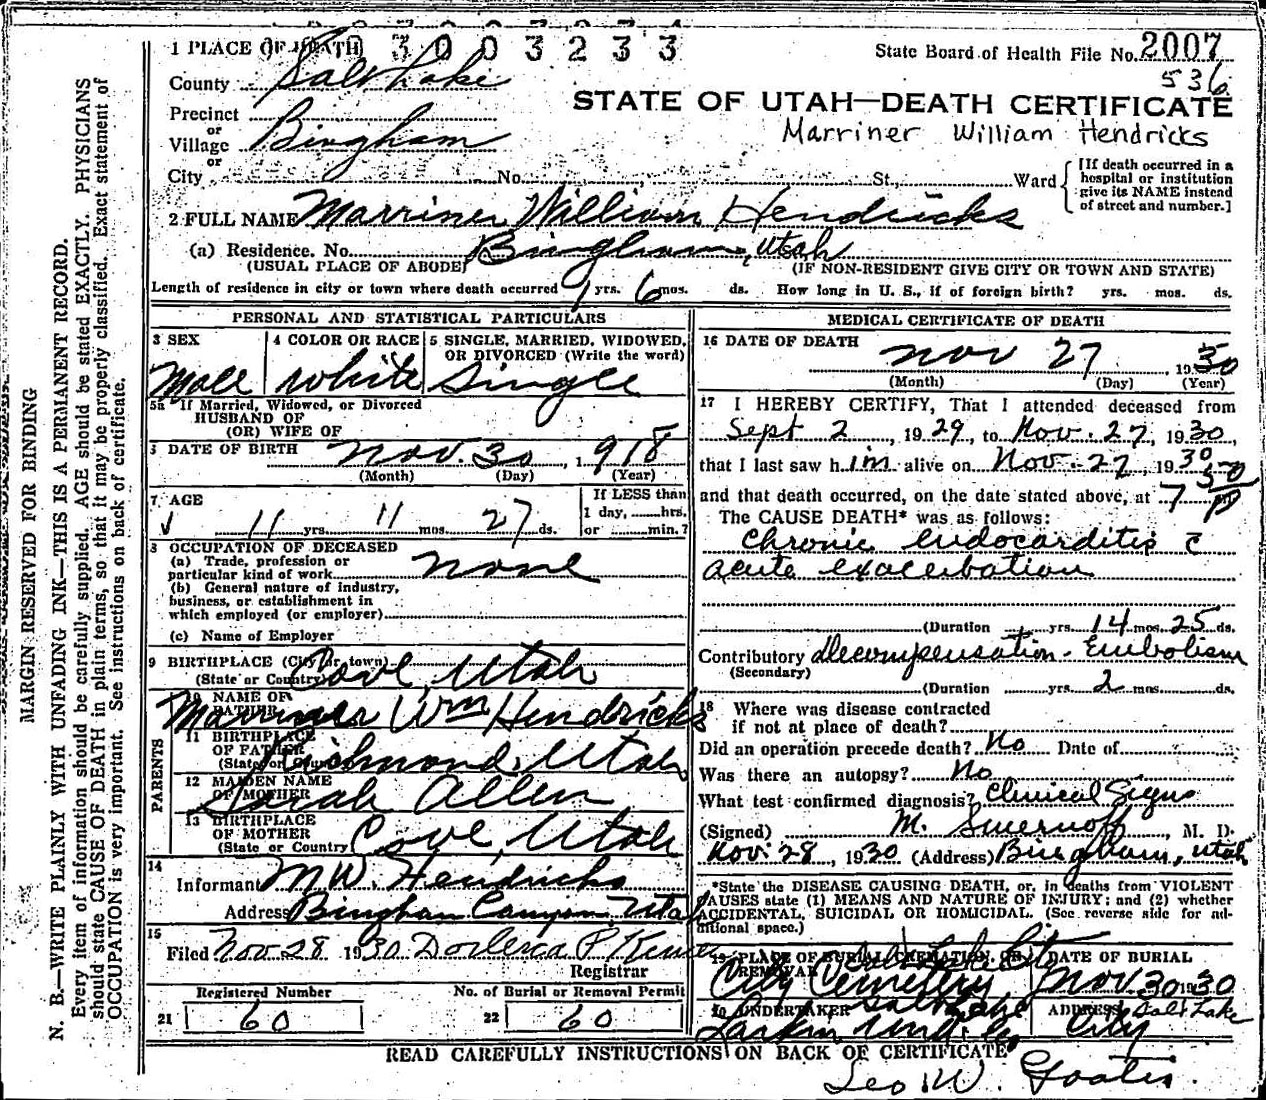 1 PLACE OF DEATH 3 0 0 3 2 3 3 State Board of Health File No. 2007
536
County Salt Lake
STATE OF UTAH—DEATH CERTIFICATE
Precinct
or
Village Bingham
Marriner William Hendricks
or
City No. St., Ward
[If death occurred in a
hospital or institution
give its NAME instead
of street and number.]
2 FULL NAME Marriner William Hendricks
(a) Residence. No. Bingham, Utah
(USUAL PLACE OF ABODE) (IF NON-RESIDENT GIVE CITY OR TOWN AND STATE)
Length of residence in city or town where death occurred 1 yrs. 6 mos. ds. How long in U. S., if of foreign birth? yrs. mos. ds.
PERSONAL AND STATISTICAL PARTICULARS
3 SEX 4 COLOR OR RACE 5 SINGLE, MARRIED, WIDOWED,
OR DIVORCED (Write the word)
Male white Single
5a If Married, Widowed, or Divorced
HUSBAND OF
(OR) WIFE OF
DATE OF BIRTH Nov. 30, 1918
(Month) (Day) (Year)
7 AGE If LESS than
1 day, hrs.
11 yrs. 11 mos. 27 ds. or min.?
OCCUPATION OF DECEASED
(a) Trade, profession or
particular kind of work none
(b) General nature of industry,
business, or establishment in
which employed (or employer)
(c) Name of Employer
9 BIRTHPLACE (City or town)
(State or Country) Cove, Utah
PARENTS
10 NAME OF
FATHER Marriner Wm Hendricks
11 BIRTHPLACE
OF FATHER
(State or Country) Richmond, Utah
12 MAIDEN NAME
OF MOTHER Sarah Allen
13 BIRTHPLACE
OF MOTHER
(State or Country) Cove, Utah
14
Informant M W. Hendricks
Address Bingham Canyon Utah
15
Filed Nov 28 1930
Registrar
Registered Number No. of Burial or Removal Permit
21 60 22 60
MEDICAL CERTIFICATE OF DEATH
16 DATE OF DEATH
Nov 27, 1930
(Month) (Day) (Year)
17 I HEREBY CERTIFY, That I attended deceased from
Sept 2, 1929, to Nov. 27, 1930,
that I last saw him alive on Nov. 27, 1930
and that death occurred, on the date stated above, at 7 50 p
The CAUSE DEATH* was as follows:
Chronic endocarditis c
acute exacerbation
(Duration yrs. 14 mos. 25 ds.
Contributory Decompensation - Embolism
(Secondary)
(Duration yrs. 2 mos. ds.
18 Where was disease contracted
if not at place of death?
Did an operation precede death? No Date of
Was there an autopsy? No
What test confirmed diagnosis? Clinical Signs
(Signed) M. Smernoff, M. D.
Nov. 28, 1930 (Address) Bingham, Utah
*State the DISEASE CAUSING DEATH, or, in deaths from VIOLENT
CAUSES state (1) MEANS AND NATURE OF INJURY; and (2) whether
ACCIDENTAL, SUICIDAL OR HOMICIDAL. (See reverse side for ad-
ditional space.)
19 PLACE OF BURIAL, CREMATION, OR DATE OF BURIAL
REMOVAL Salt Lake City
City Cemetery Nov. 30 1930
20 UNDERTAKER Salt Lake ADDRESS Salt Lake
Larkin City
READ CAREFULLY INSTRUCTIONS ON BACK OF CERTIFICATE
Leo W. Goates.
MARGIN RESERVED FOR BINDING
N. B.—WRITE PLAINLY WITH UNFADING INK—THIS IS A PERMANENT RECORD.
Every item of information should be carefully supplied. AGE should be stated EXACTLY. PHYSICIANS
should state CAUSE OF DEATH in plain terms, so that it may be properly classified. Exact statement of
OCCUPATION is very important. See instructions on back of certificate.